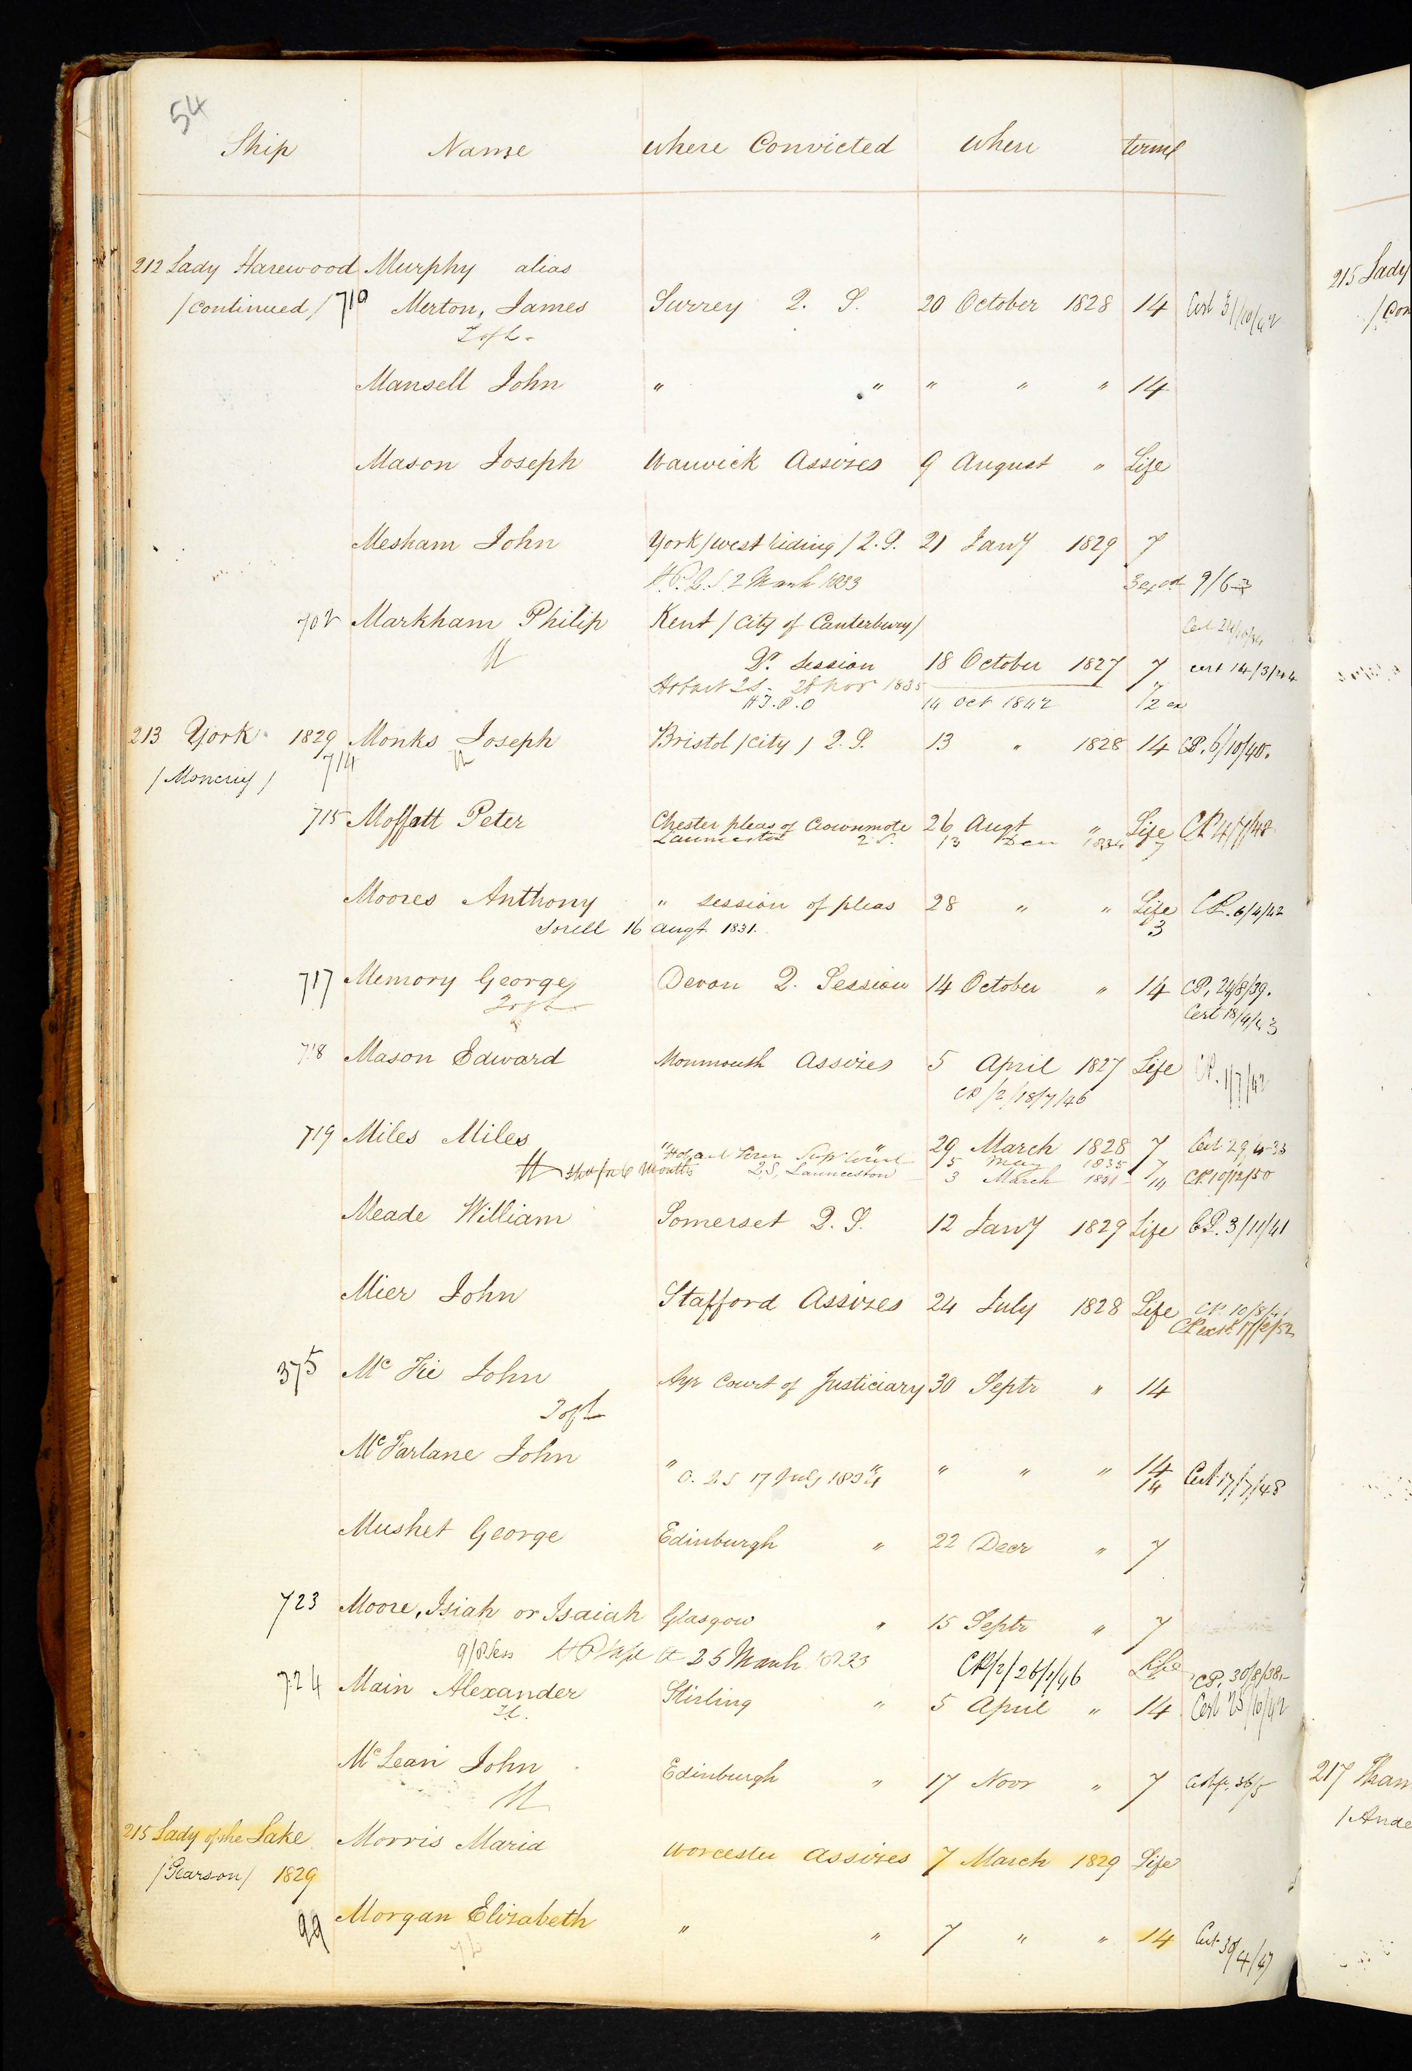 54
Ship Name where Convicted when term
212 Lady Harewood Murphy alias
/Continued/ 710 Merton, James Surrey Q. S. 20 October 1828 14 Cert 31/10/42
T of L.
Mansell John " " " " " 14
Mason Joseph Warwick Assizes 9 August " Life
Mesham John York /west riding/ Q.S. 21 Jany 1829 7
2 March 1833 9/6
702 Markham Philip Kent /City of Canterbury/
Qr Session 18 October 1827 7 cert 14/3/44
Hobart Q S. 28 Nov 1835 7
14 Oct 1842 1/2
213 York 1829 Monks Joseph Bristol /City/ Q.S. 13 " 1828 14 CP. 6/10/40.
/Moncrief/ 714
715 Moffatt Peter Chester pleas of Crownmote 26 Augt " Life CP 4/7/48
Launceston Q S. 13 1834 7
Moores Anthony " session of pleas 28 " " Life CP. 6/4/42
Sorell 16 Augt 1831. 3
717 Memory George Devon Q. Session 14 October " 14 CP. 29/8/39.
T of L Cert 18/4/43
718 Mason Edward Monmouth Assizes 5 April 1827 Life CP. 1/7/42
CP/2/18/7/46
719 Miles Miles " " 29 March 1828 7
5 May 1835 7
Q.S. Launceston 3 March 1841 CP. 10/12/50
Meade William Somerset Q. S. 12 Jany 1829 Life CP. 3/11/41
Mier John Stafford Assizes 24 July 1828 Life CP. 10/8/41
375 Mc Fie John Ayr Court of Justiciary 30 Septr " 14
T of L
McFarlane John " " " " " 14 Cert 17/7/48
17 July 1834 14
Mushet George Edinburgh " 22 Decr " 7
723 Moore, Isiah or Isaiah Glasgow " 15 Septr " 7
25 March 1833 CP/2/26/1/46 Life
CP. 30/8/38
724 Main Alexander Stirling " 5 April " 14 Cert 25/10/42
TL.
McLean John Edinburgh " 17 Novr " 7
215 Lady of the Lake Morris Maria Worcester Assizes 7 March 1829 Life
/Pearson/ 1829
99 Morgan Elizabeth " " 7 " " 14 Cert 30/4/47
215 Lady
/Con
217 Tham
/Ande